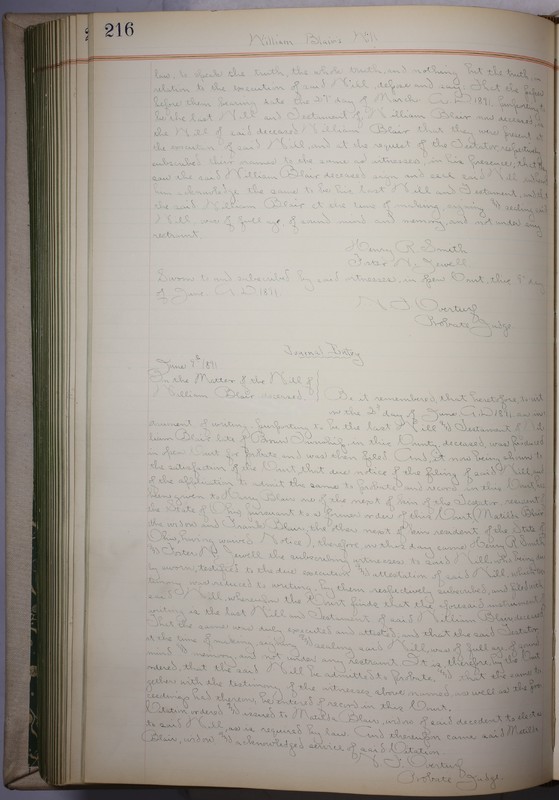 216
William Blair's Will
law, to speak the truth, the whole truth, and nothing but the truth, in
relation to the execution of said Will, depose and say, That the paper
before them bearing date the day of March A.D. 1891, purporting to
be the last Will and Testament of William Blair now deceased is
the Will of said deceased William Blair that they were present at
the execution of said Will, and at the request of the Testator respectively
subscribed their names to the same as witnesses, in his presence; that they
saw the said William Blair deceased sign and seal said Will and heard
him acknowledge the same to be his last Will and Testament, and that
the said William Blair at the time of making, signing & sealing said
Will was of full age, of sound mind and memory, and not under any
restraint.
Henry R. Smith
Foster N. Jewell
Sworn to and subscribed by said witnesses, in open Court, this 9" day
of June, A.D. 1891.
Probate Judge
Journal Entry
June 9th 1891
In the Matter of the Will of
William Blair deceased.
Be it remembered, that heretofore, to wit
on the 2" day of June A.D. 1891 an
instrument of writing, purporting to be the last Will & Testament of Wil-
liam Blair late of Township, in this County, deceased, was produced
in open Court for Probate and was then filed. And, it now being shown to
the satisfaction of the Court, that due notice of the filing of said Will and
of the application to admit the same to probate and record in this Court, has
been given to Blair one of the next of kin of the Testator resident of
the State of Ohio pursuant to a former order of this Court (Matilda Blair
the widow and Frank Blair, the other next of kin resident of the State of
Ohio, having waived Notice), therefore, on this day, came Henry R. Smith
& Foster N. Jewell the subscribing witnesses to said Will, who being du-
ly sworn, testified to the due execution & attestation of said Will, which tes-
timony was reduced to writing, by them respectively subscribed, and filed with
said Will, whereupon the Court finds that the aforesaid instrument of
writing is the last Will and Testament of said William Blair deceased
That the same was duly executed and attested, and that the said Testator
at the time of making, signing & sealing said Will, was of full age, of sound
mind & memory, and not under any restraint. It is, therefore, by the Court
ordered, that the said Will be admitted to Probate, & that the same to-
gether with the testimony of the witnesses above named, as well as the pro-
ceedings had therein, be entered of record in this Court.
Citation ordered & issued to Matilda Blair, widow of said decedent to elect as
to said Will, as is required by law. And thereupon came said Matilda
Blair, widow & acknowledged service of said Citation.
Probate Judge